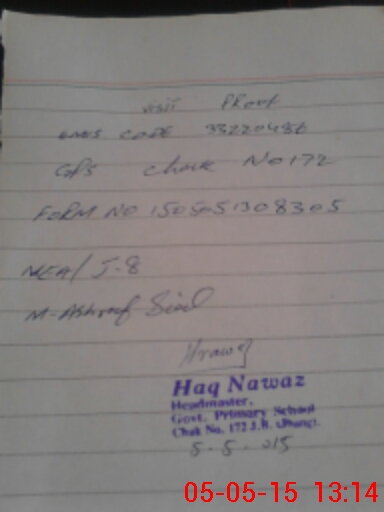 visit Proof
EMIS CODE 33220486
GPS chak No 172
FORM NO 1505051308305
MEA/ J-8
M-Ashraf Sial
Hnawaz
Haq Nawaz
Headmaster,
Govt. Primary School
Chak No. 172 J.B. (Jhang).
5-5-015
05-05-15 13:14